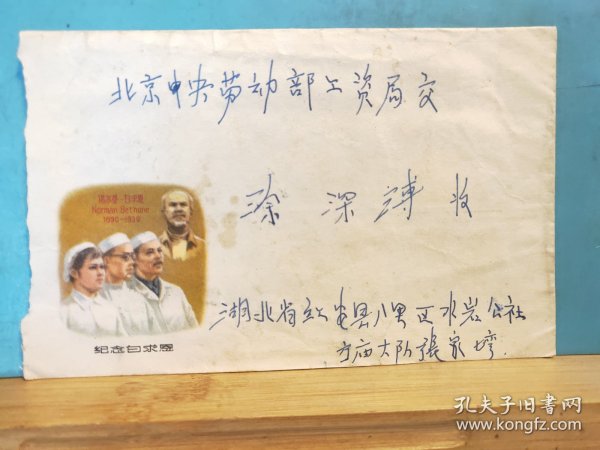 北京中央劳动部工资局交
涂深溥收
诺尔曼·白求恩
Norman Bethune
1890-1939
湖北省红安县八里区水岩公社
方庙大队張家塆
纪念白求恩
孔夫子旧书网
www.kongfz.com